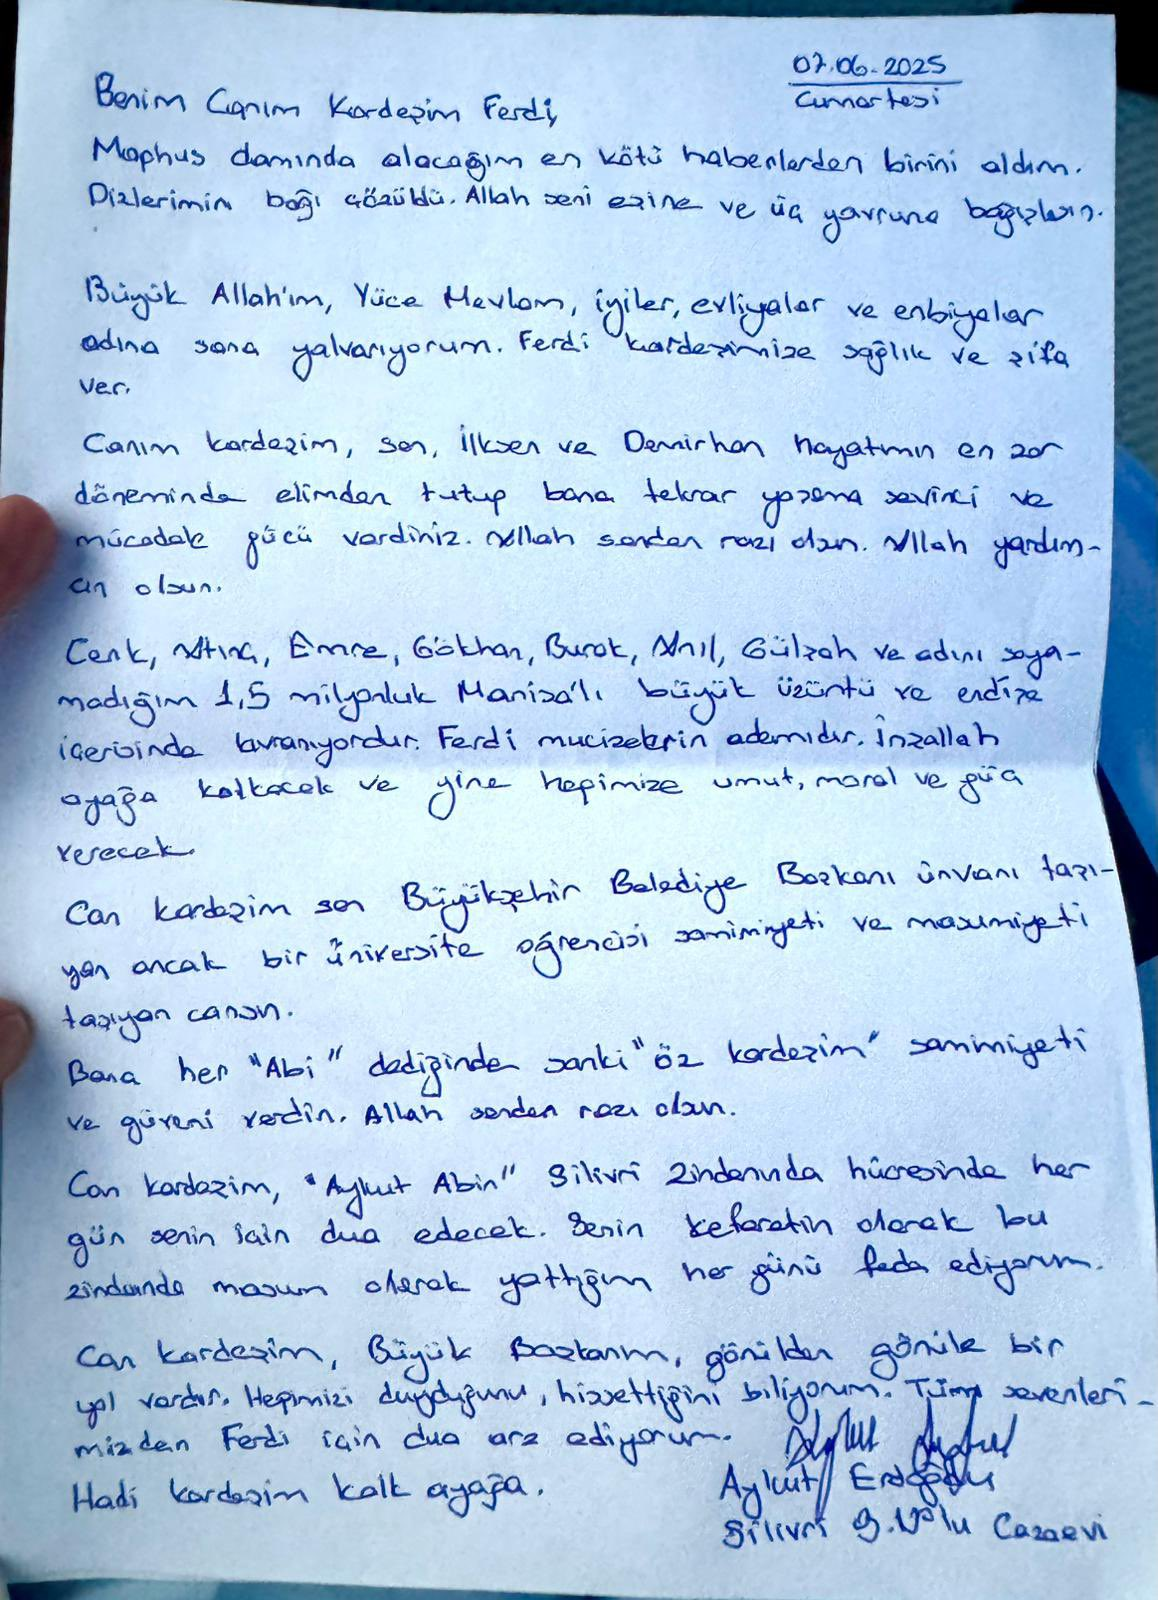 07.06.2025
Cumartesi
Benim Canım Kardeşim Ferdi,
Maphus damında alacağım en kötü haberlerden birini aldım.
Dizlerimin bağı çözüldü. Allah seni eşine ve üç yavruna bağışlasın.
Büyük Allah'ım, Yüce Mevlam, iyiler, evliyalar ve enbiyalar
adına sana yalvarıyorum. Ferdi kardeşimize sağlık ve şifa
ver.
Canım kardeşim, sen, İlksen ve Demirhan hayatımın en zor
döneminde elimden tutup bana tekrar yaşama sevinci ve
mücadele gücü verdiniz. Allah senden razı olsun. Allah yardım-
cın olsun.
Cenk, Attınç, Emre, Gökhan, Burak, Anıl, Gülşah ve adını saya-
madığım 1,5 milyonluk Manisa'lı büyük üzüntü ve endişe
içerisinde kıvranıyordur. Ferdi mucizelerin adamıdır. İnşallah
ayağa kalkacak ve yine hepimize umut, moral ve güç
verecek.
Can kardeşim sen Büyükşehir Belediye Başkanı ünvanı taşı-
yan ancak bir üniversite öğrencisi samimiyeti ve masumiyeti
taşıyan cansın.
Bana her "Abi" dediğinden sanki "öz kardeşim" samimiyeti
ve güveni verdin. Allah senden razı olsun.
Can kardeşim, "Aykut Abin" Silivri Zindanında hücresinde her
gün senin için dua edecek. Senin kefaretin olarak bu
zindanda masum olarak yattığım her günü feda ediyorum.
Can kardeşim, Büyük Başkanım, gönülden gönüle bir
yol vardır. Hepimizi duyduğunu, hissettiğini biliyorum. Tüm sevenleri-
mizden Ferdi için dua arz ediyorum.
Hadi kardeşim kalk ayağa.
Aykut Erdoğdu
Silivri 9. No'lu Cezaevi